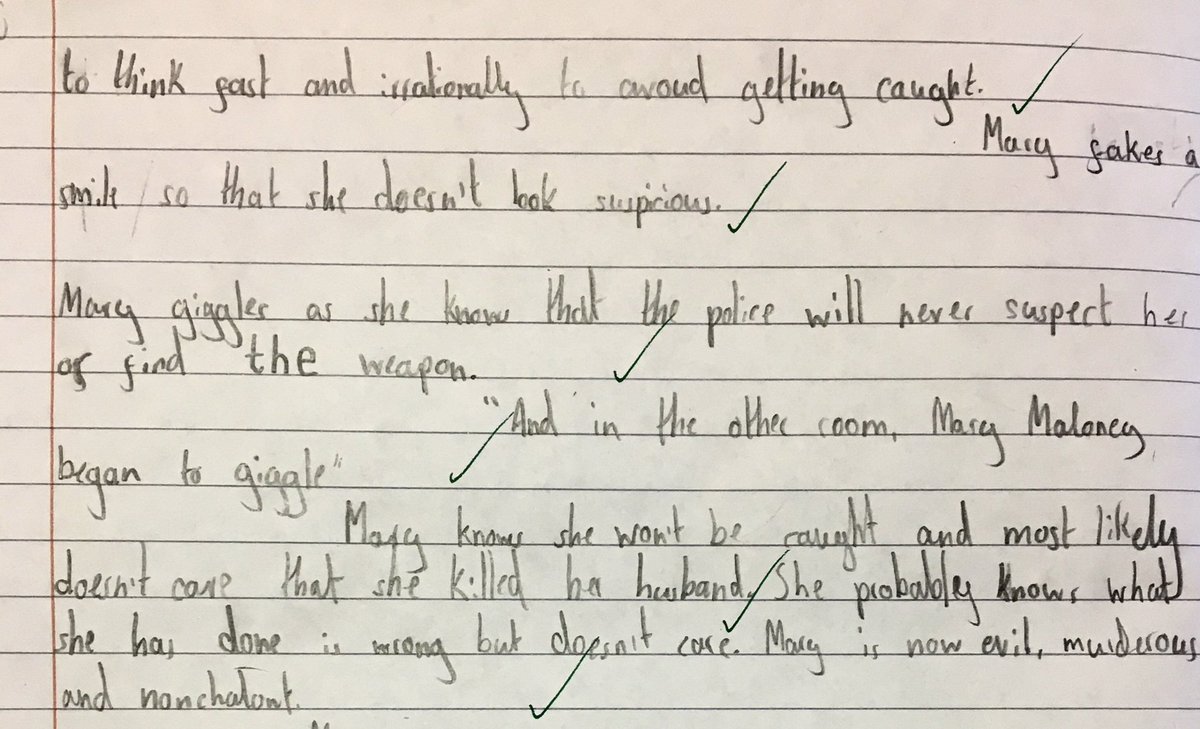 to think fast and irrationally to avoud getting caught.
Mary fakes a
smile so that she doesn't look suspicious.
Mary giggles as she knows that the police will never suspect her
or find the weapon.
"And in the other room, Mary Maloney
began to giggle"
Mary knows she won't be caught and most likely
doesn't care that she killed her husband. She probably knows what
she has done is wrong but doesn't care. Mary is now evil, murderous
and nonchalont.